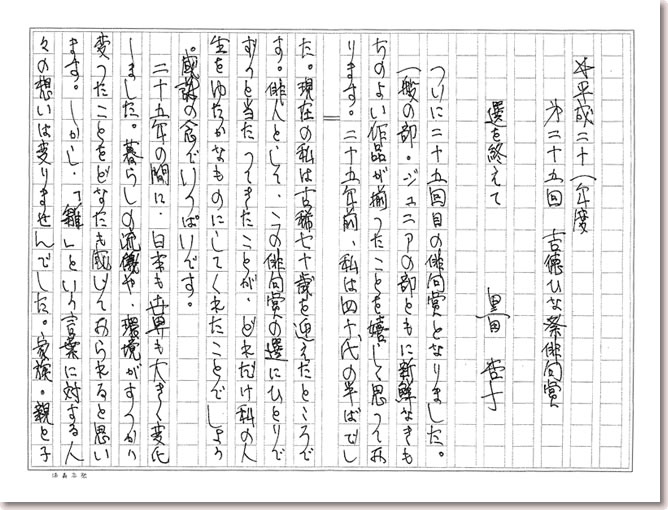 平成二十一年度
第二十五回 吉徳ひな祭俳句賞
選を終えて
黒田 杏子
ついに二十五回目の俳句賞となりました。
一般の部・ジュニアの部ともに新鮮なきも
ちのよい作品が揃ったことを嬉しく思ってお
ります。二十五年前、私は四十代の半ばでし
た。現在の私は古稀七十歳を迎えたところで
す。俳人として、この俳句賞の選にひとりで
ずっと当たってきたことが、どれだけ私の人
生をゆたかなものにしてくれたことでしょう
。感謝の念でいっぱいです。
二十五年の間に、日本も世界も大きく変化
しました。暮らしの流儀や、環境がすっかり
変ったことをどなたも感じておられると思い
ます。しかし、「雛」という言葉に対する人
々の想いは変りませんでした。家族・親と子